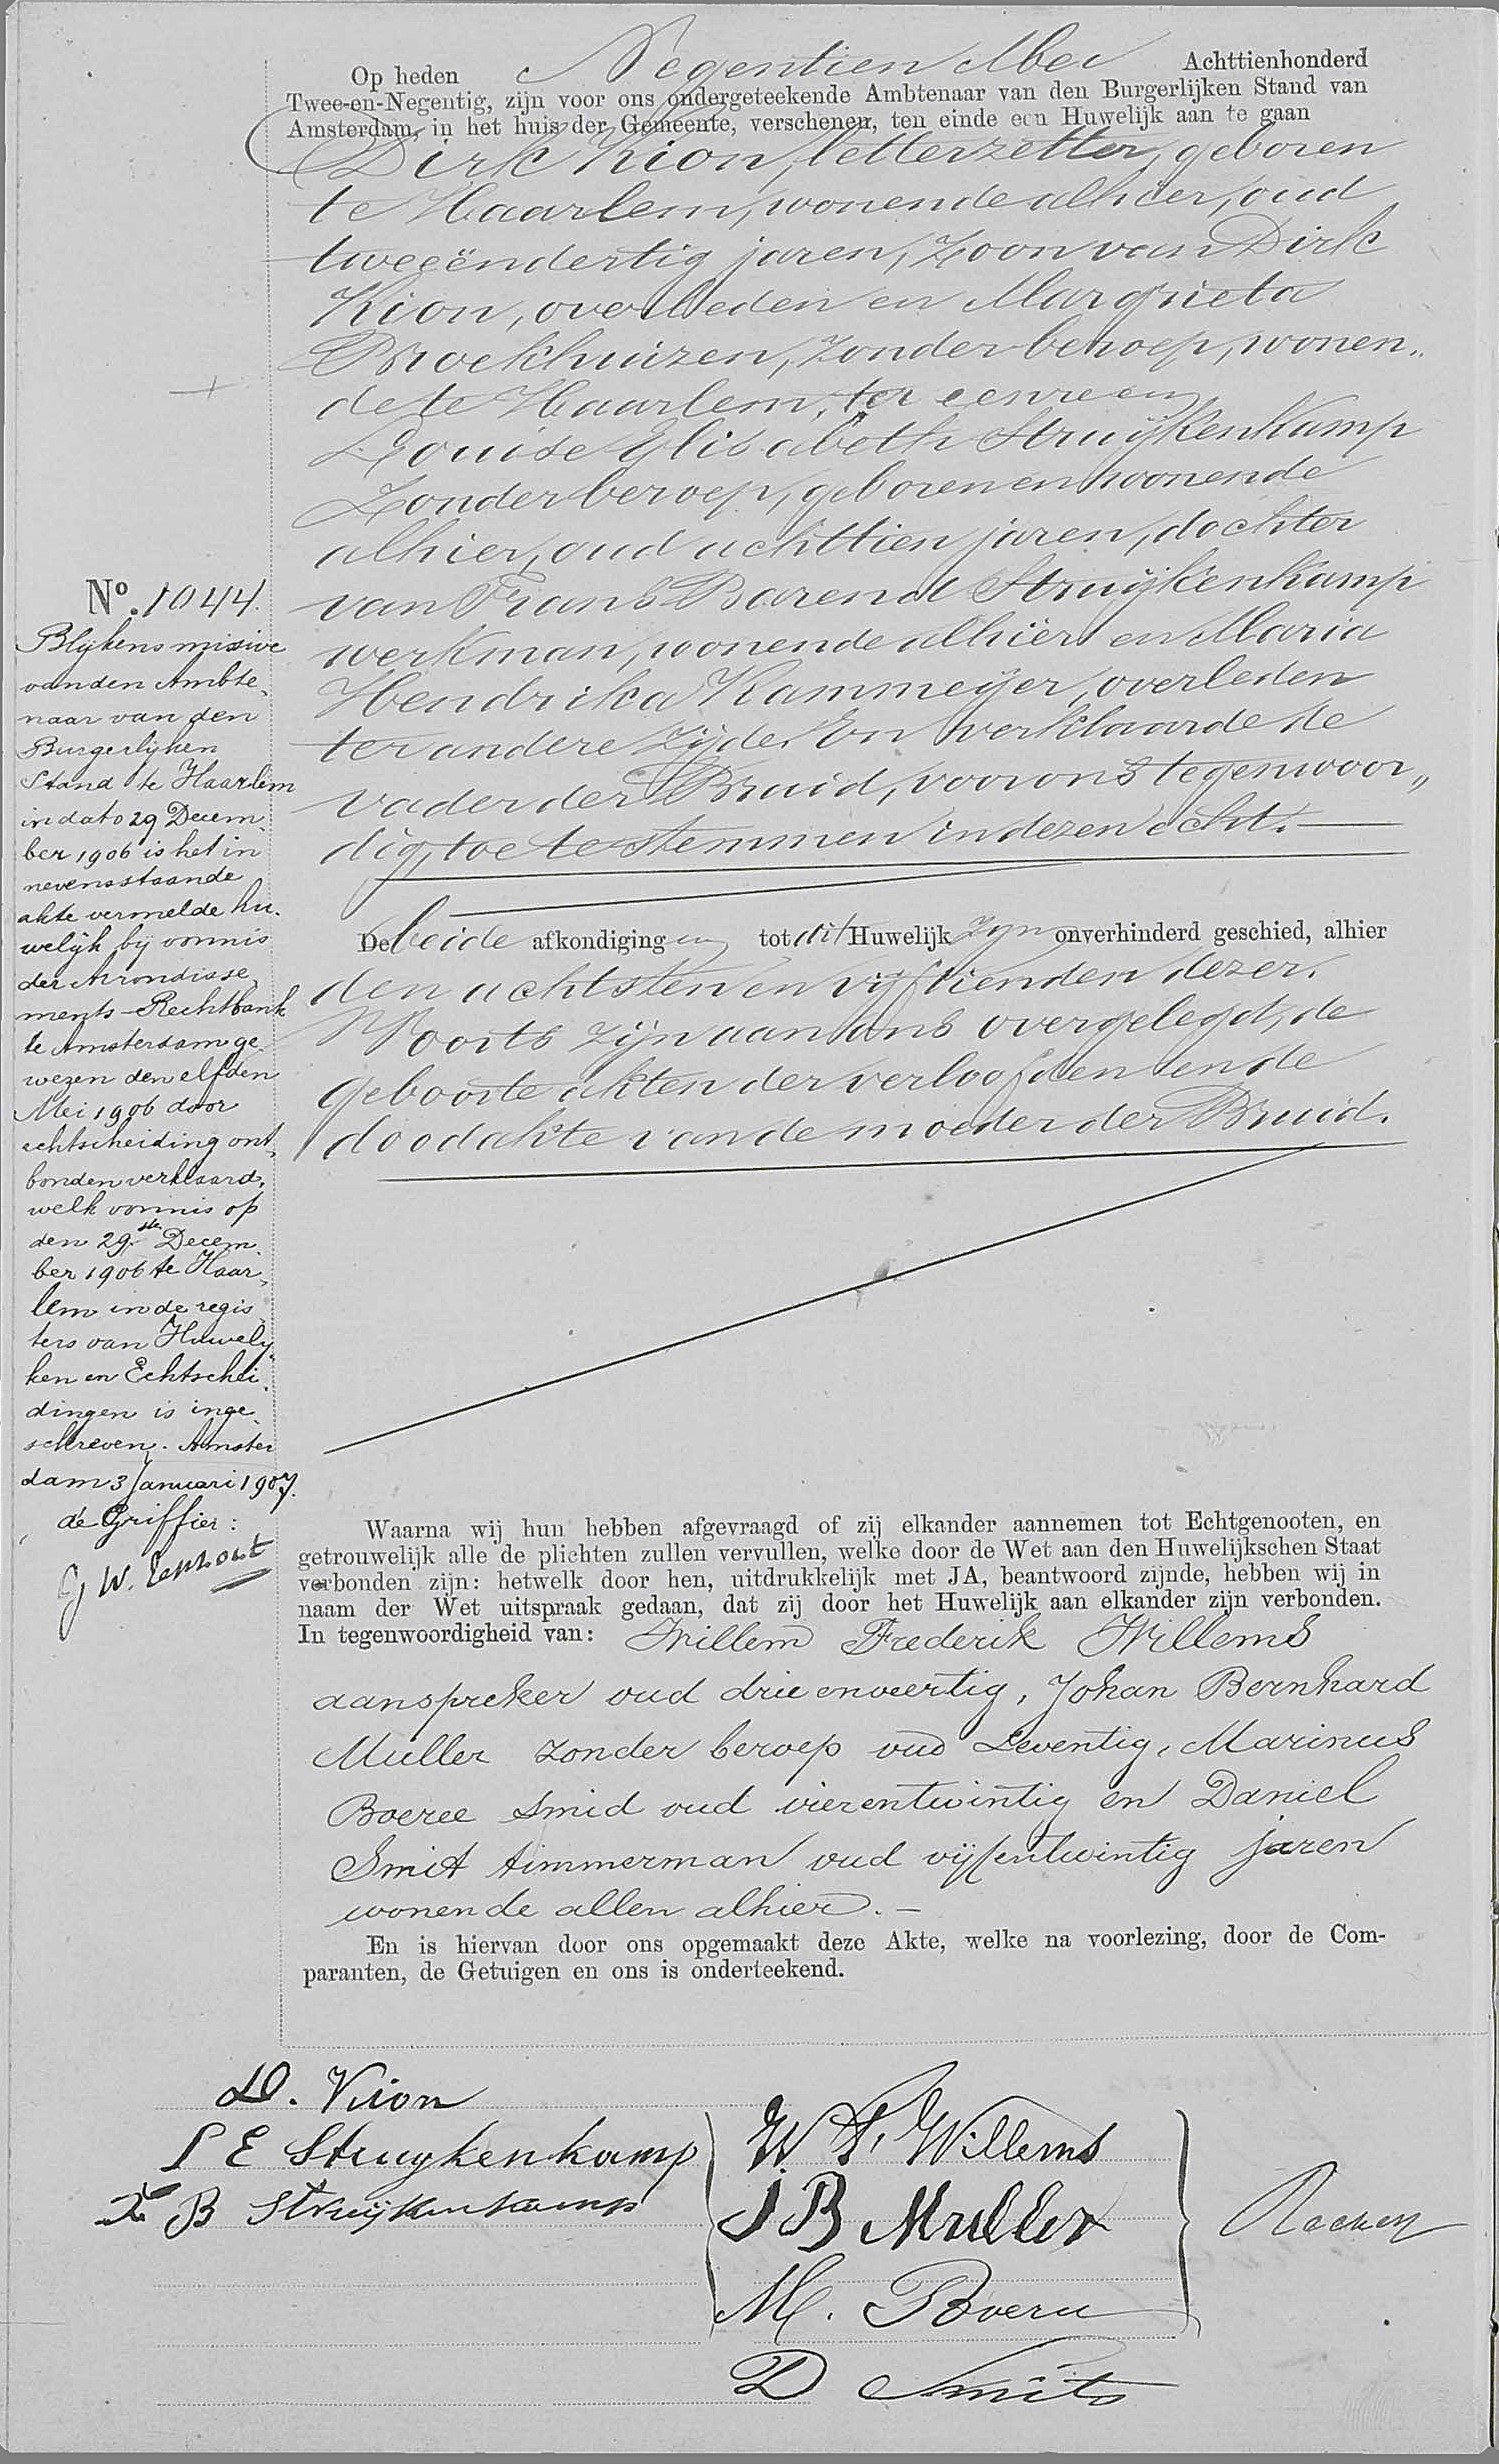 Op heden Negentien Mei Achttienhonderd
Twee-en-Negentig, zijn voor ons ondergeteekende Ambtenaar van den Burgerlijken Stand van
Amsterdam, in het huis der Gemeente, verschenen, ten einde een Huwelijk aan te gaan
Dirk Kion, letterzetter, geboren
te Haarlem, wonende alhier, oud
tweeëndertig jaren, Zoon van Dirk
Kion, overleden en Margrieta
Broekhuizen, zonder beroep, wonen„
de te Haarlem, ter eenre en
Louise Elisabeth Struijkenkamp
Zonder beroep, geboren en wonende
alhier, oud achttien jaren, dochter
van Frans Barend Struijkenkamp
werkman, wonende alhier en Maria
Hendrika Kammeijer, overleden
ter andere zijde. En verklaarde de
vader der Bruid, voor ons tegenwoor„
dig, toe te stemmen in dezen echt.
De beide afkondigingen tot dit Huwelijk zijn onverhinderd geschied, alhier
den achtsten en vijftienden dezer.
Voorts zijn aan ons overgelegd, de
geboorte akten der verloofden en de
doodakte van de moeder der Bruid.
No. 1044.
Blijkens missive
van den Ambte„
naar van den
Burgerlijken
Stand te Haarlem
in dato 29 Decem„
ber 1906 is het in
nevensstaande
akte vermelde hu„
welijk bij vonnis
der Arrondisse„
ments-Rechtbank
te Amsterdam ge„
wezen den elfden
Mei 1906 door
echtscheiding ont„
bonden verklaard,
welk vonnis op
den 29ste Decem„
ber 1906 te Haar„
lem in de regis„
ters van Huwelij„
ken en Echtschei„
dingen is inge„
schreven. Amster
dam 3 Januari 1907.
de Griffier:
Waarna wij hun hebben afgevraagd of zij elkander aannemen tot Echtgenooten, en
getrouwelijk alle de plichten zullen vervullen, welke door de Wet aan den Huwelijkschen Staat
verbonden zijn: hetwelk door hen, uitdrukkelijk met JA, beantwoord zijnde, hebben wij in
naam der Wet uitspraak gedaan, dat zij door het Huwelijk aan elkander zijn verbonden.
In tegenwoordigheid van: Willem Frederik Willems
aanspreker oud drieenveertig, Johan Bernhard
Muller zonder beroep oud Zeventig, Marinus
Boeree smid oud vierentwintig en Daniel
Smit timmerman oud vijfentwintig jaren
wonende allen alhier. —
En is hiervan door ons opgemaakt deze Akte, welke na voorlezing, door de Com-
paranten, de Getuigen en ons is onderteekend.
D. Kion
L E Struykenkamp
F B Struijkenkamp
W. F. Willems
J B Muller
M. Boeree
D Smits